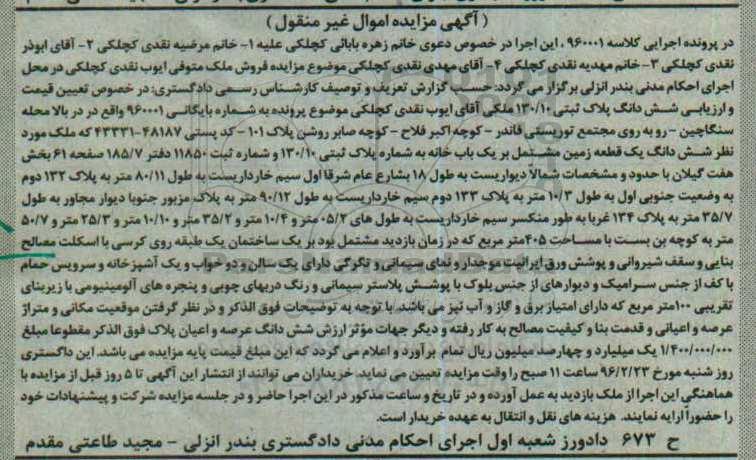 ( آگهی مزایده اموال غیر منقول )
در پرونده اجرایی کلاسه ۹۶۰۰۰۱ ، این اجرا در خصوص دعوی خانم زهره بابائی کچلکی علیه ۱- خانم مرضیه نقدی کچلکی ۲- آقای ابوذر
نقدی کچلکی ۳- خانم مهدیه نقدی کچلکی ۴- آقای مهدی نقدی کچلکی موضوع مزایده فروش ملک متوفی ایوب نقدی کچلکی در محل
اجرای احکام مدنی بندر انزلی برگزار می گردد: حسب گزارش تعریف و توصیف کارشناس رسمی دادگستری: در خصوص تعیین قیمت
و ارزیابی شش دانگ پلاک ثبتی ۱۳۰/۱۰ ملکی آقای ایوب نقدی کچلکی موضوع پرونده به شماره بایگانی ۹۶۰۰۰۱ واقع در در بالا محله
سنگاچین - رو به روی مجتمع توریستی فاندر - کوچه اکبر فلاح - کوچه صابر روشن پلاک ۱۰۱ - کد پستی ۴۸۱۸۷-۴۳۳۳۱ که ملک مورد
نظر شش دانگ یک قطعه زمین مشتمل بر یک باب خانه به شماره پلاک ثبتی ۱۳۰/۱۰ و شماره ثبت ۱۱۸۵۰ دفتر ۱۸۵/۷ صفحه ۶۱ بخش
هفت گیلان با حدود و مشخصات شمالا دیواریست به طول ۱۸ بشارع عام شرقا اول سیم خارداریست به طول ۸۰/۱۱ متر به پلاک ۱۳۲ دوم
به وضعیت جنوبی اول به طول ۱۰/۳ متر به پلاک ۱۳۳ دوم سیم خارداریست به طول ۹۰/۱۲ متر به پلاک مزبور جنوبا دیوار مجاور به طول
۳۵/۷ متر به پلاک ۱۳۴ غربا به طور منکسر سیم خارداریست به طول های ۰۵/۲ متر و ۱۰/۴ متر و ۳۵/۲ متر و ۱۰/۱۰ متر و ۲۵/۳ متر و ۵۰/۷
متر به کوچه بن بست با مساحت ۴۰۵ متر مربع که در زمان بازدید مشتمل بود بر یک ساختمان یک طبقه روی کرسی با اسکلت مصالح
بنایی و سقف شیروانی و پوشش ورق ایرانیت موجدار و نمای سیمانی و تگرگی دارای یک سالن و دو خواب و یک آشپزخانه و سرویس حمام
با کف از جنس سرامیک و دیوارهای از جنس بلوک با پوشش پلاستر سیمانی و رنگ دربهای چوبی و پنجره های آلومینیومی با زیربنای
تقریبی ۱۰۰ متر مربع که دارای امتیاز برق و گاز و آب نیز می باشد. با توجه به توضیحات فوق الذکر و در نظر گرفتن موقعیت مکانی و متراژ
عرصه و اعیانی و قدمت بنا و کیفیت مصالح به کار رفته و دیگر جهات مؤثر ارزش شش دانگ عرصه و اعیان پلاک فوق الذکر مقطوعا مبلغ
۱/۴۰۰/۰۰۰/۰۰۰ یک میلیارد و چهارصد میلیون ریال تمام برآورد و اعلام می گردد که این مبلغ قیمت پایه مزایده می باشد. این داگستری
روز شنبه مورخ ۹۶/۲/۲۳ ساعت ۱۱ صبح را وقت مزایده تعیین می نماید. خریداران می توانند از انتشار این آگهی تا ۵ روز قبل از مزایده با
هماهنگی این اجرا از ملک بازدید به عمل آورده و در تاریخ و ساعت مذکور در این اجرا حاضر و در جلسه مزایده شرکت و پیشنهادات خود
را حضورا ارایه نمایند. هزینه های نقل و انتقال به عهده خریدار است.
ح ۶۷۳ دادورز شعبه اول اجرای احکام مدنی دادگستری بندر انزلی - مجید طاعتی مقدم